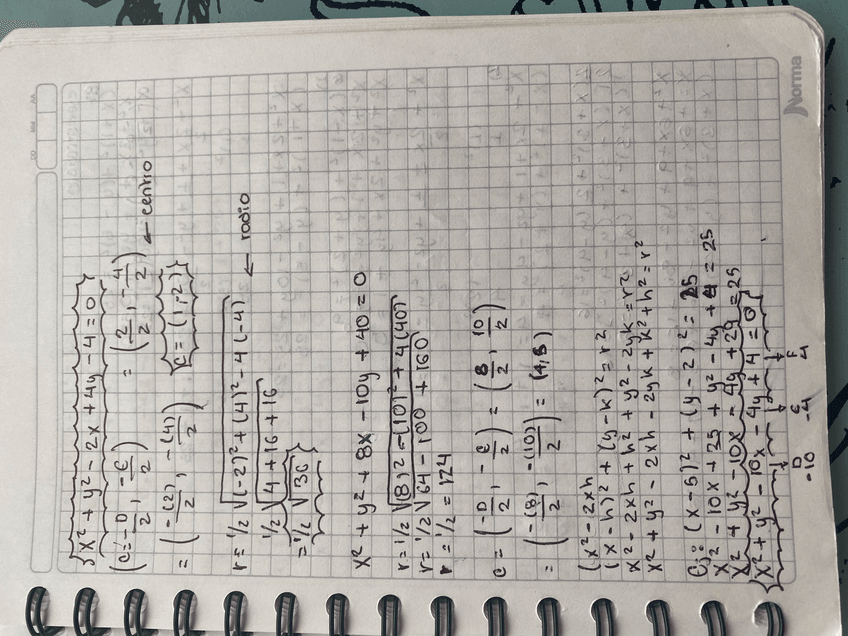 x² + y² - 2x + 4y - 4 = 0
(C = -D/2, -E/2) = (2/2, -4/2) ← centro
= (-(2)/2, -(4)/2) C = (1,-2)
r = 1/2 √(-2)² + (4)² - 4(-4) ← radio
1/2 √4 + 16 + 16
= 1/2 √36
x² + y² + 8x - 10y + 40 = 0
r = 1/2 √(8)² - (10)² + 4(40)
r = 1/2 √64 - 100 + 160
r = 1/2 = 124
C = (-D/2, -E/2) = (8/2, 10/2)
= (-(8)/2, -(10)/2) = (4,5)
(x² - 2xh
(x - h)² + (y - k)² = r²
x² - 2xh + h² + y² - 2yk = r²
x² + y² - 2xh - 2yk + k² + h² = r²
Ej: (x - 5)² + (y - 2)² = 25
x² - 10x + 25 + y² - 4y + 4 = 25
x² + y² - 10x - 4y + 29 = 25
x² + y² - 10x - 4y + 4 = 0
D E F
-10 -4 4
Norma